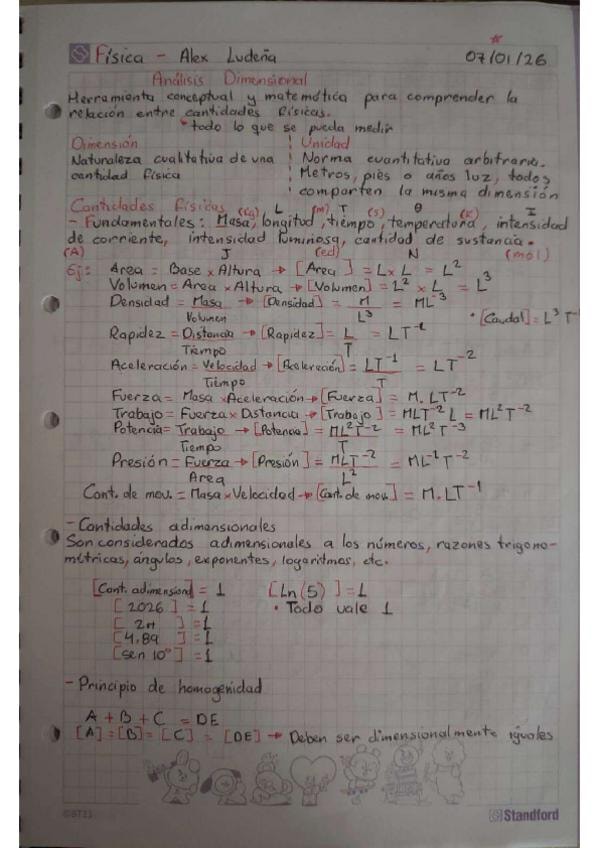 Física - Alex Ludeña 07/01/26
Análisis Dimensional
Herramienta conceptual y matemática para comprender la
relación entre cantidades físicas.
todo lo que se pueda medir
Dimensión Unidad
Naturaleza cualitativa de una Norma cuantitativa arbitraria.
cantidad física Metros, pies o años luz, todos
comparten la misma dimensión
Cantidades físicas (Kg) L (m) T (s) θ (K) I
- Fundamentales: Masa, longitud, tiempo, temperatura, intensidad
de corriente, intensidad luminosa, cantidad de sustancia.
(A) J (cd) N (mol)
Ej: Área = Base × Altura → [Área] = L × L = L²
Volumen = Área × Altura → [Volumen] = L² × L = L³
Densidad = Masa → [Densidad] = M = ML⁻³
Volumen L³ • [Caudal] = L³T⁻¹
Rapidez = Distancia → [Rapidez] = L = LT⁻¹
Tiempo T
Aceleración = Velocidad → [Aceleración] = LT⁻¹ = LT⁻²
Tiempo T
Fuerza = Masa × Aceleración → [Fuerza] = M.LT⁻²
Trabajo = Fuerza × Distancia → [Trabajo] = MLT⁻²L = ML²T⁻²
Potencia = Trabajo → [Potencia] = ML²T⁻² = ML²T⁻³
Tiempo T
Presión = Fuerza → [Presión] = MLT⁻² = ML⁻¹T⁻²
Area L²
Cant. de mov. = Masa × Velocidad → [Cant. de mov.] = M.LT⁻¹
- Cantidades adimensionales
Son considerados adimensionales a los números, razones trigono-
métricas, ángulos, exponentes, logaritmos, etc.
[Cant. adimensional] = 1 [Ln(5)] = 1
[2026] = 1 • Todo vale 1
[2π] = 1
[4,89] = 1
[sen 10°] = 1
- Principio de homogenidad
A + B + C = DE
[A] = [B] = [C] = [DE] → Deben ser dimensionalmente iguales
©BT21 Standford